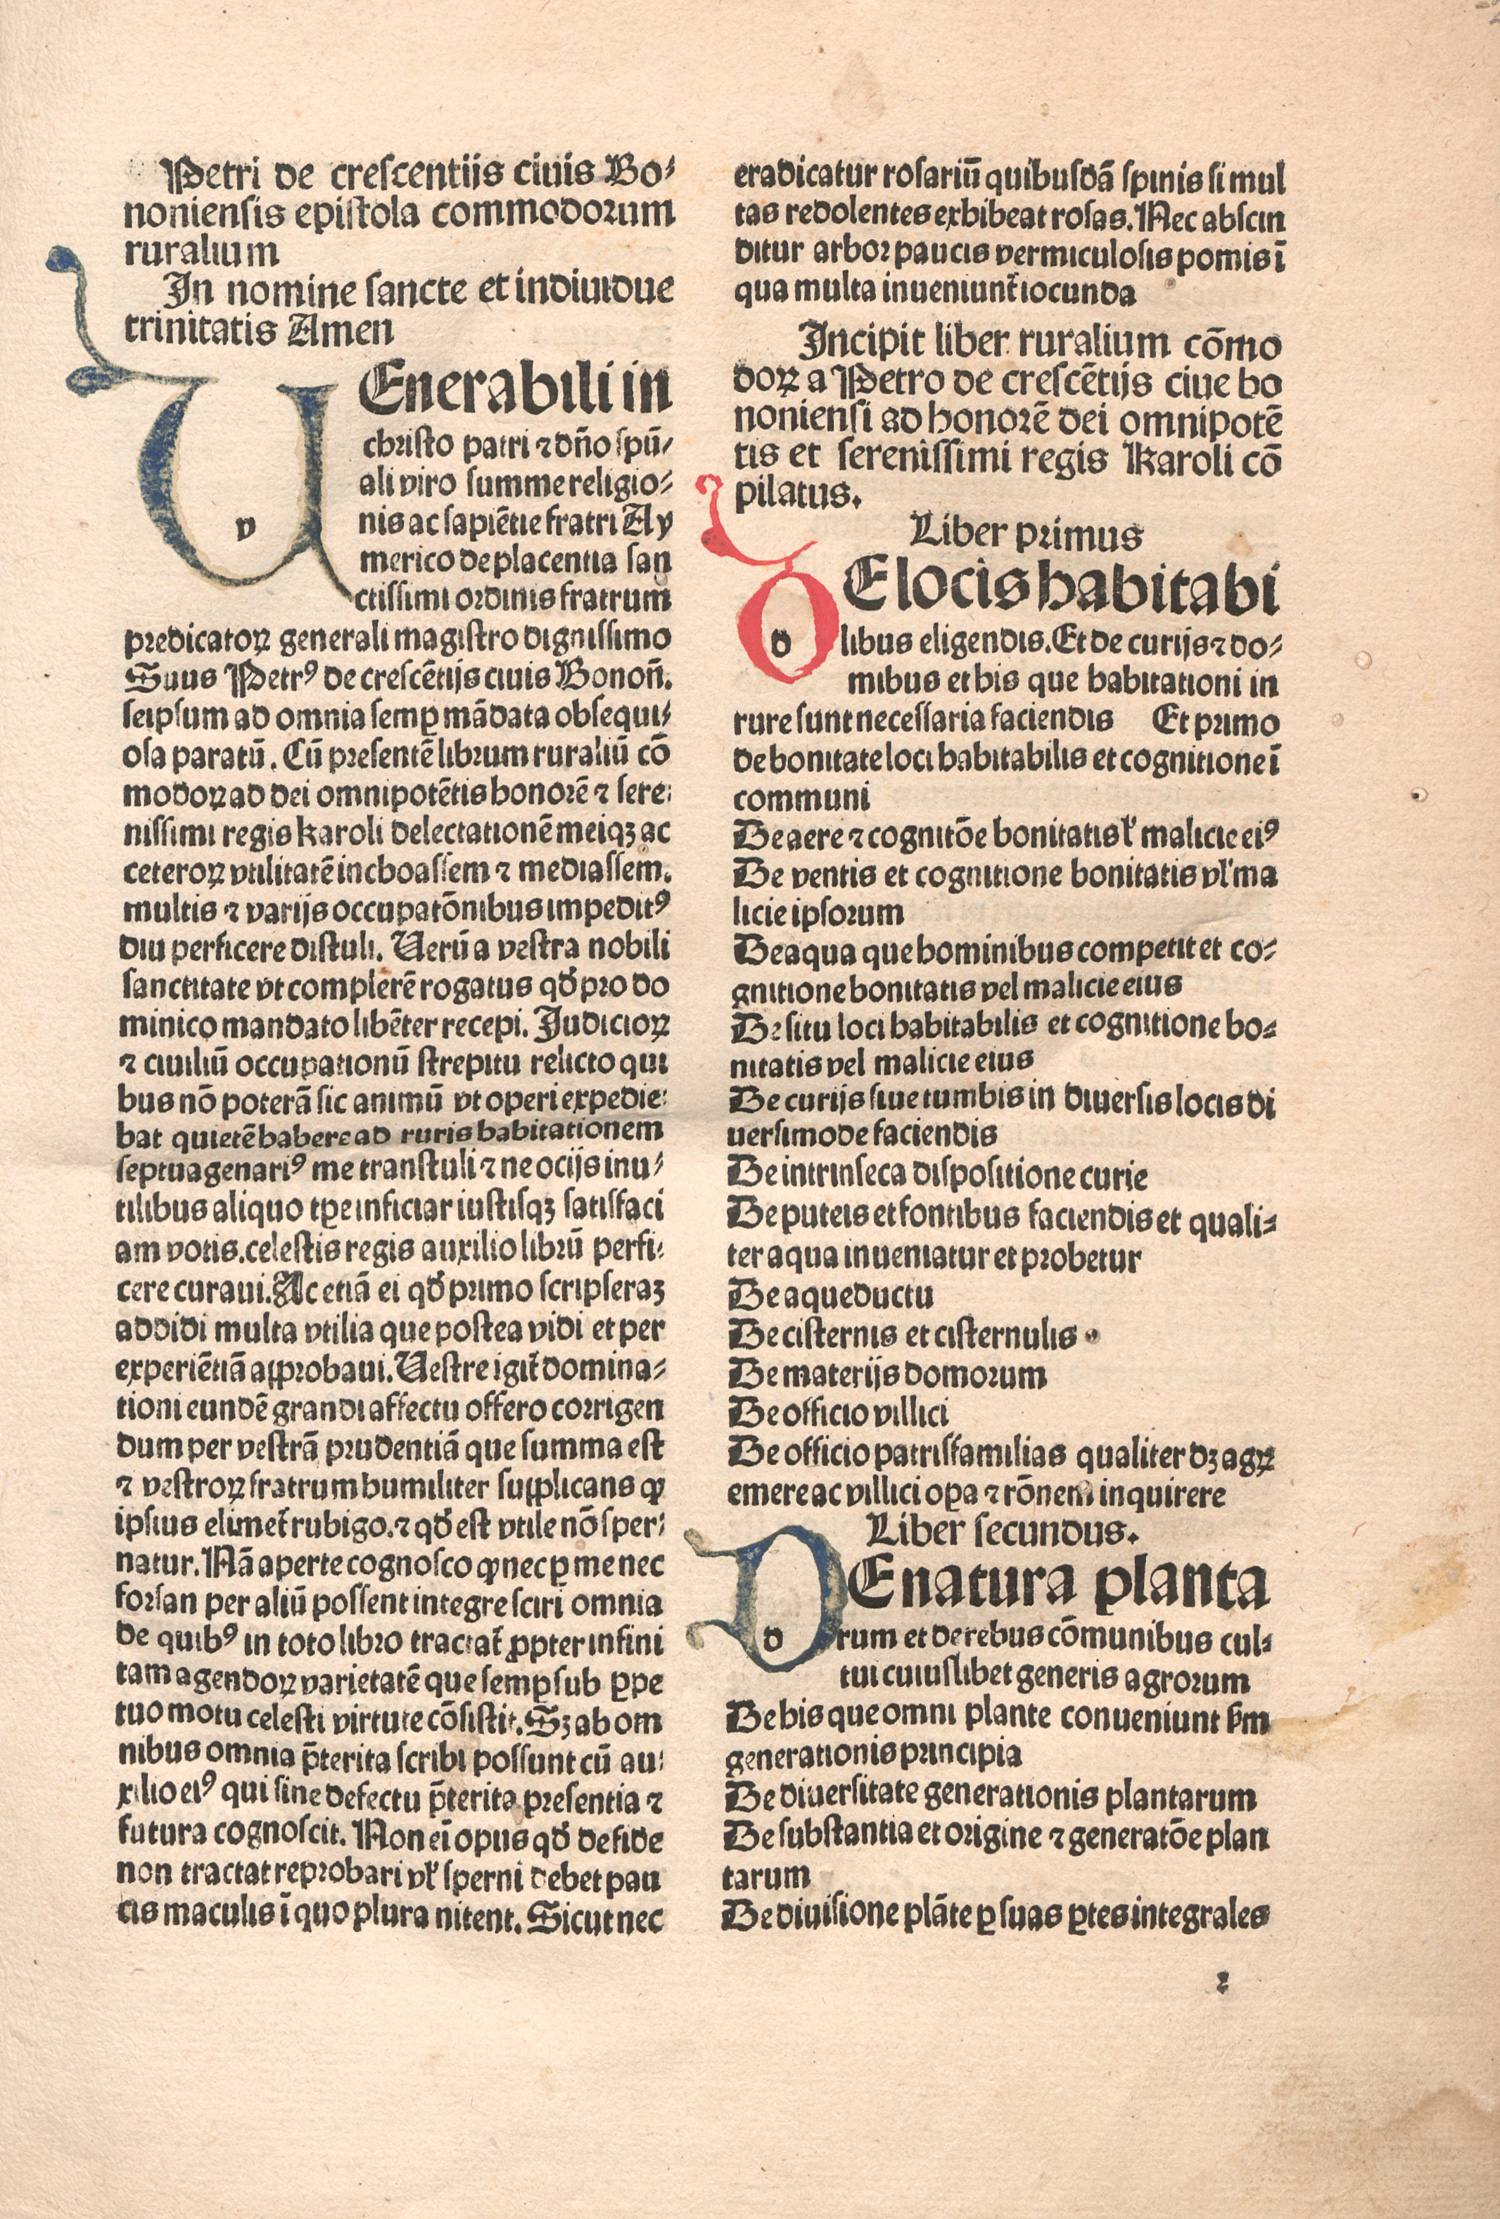 Petri de crescentijs ciuis Bo⸗
noniensis epistola commodorum
ruralium
In nomine sancte et indiuidue
trinitatis Amen
VEnerabili in
christo patri ⁊ dño spũ⸗
ali viro summe religio⸗
nis ac sapiẽtie fratri Ay
merico de placentia san
ctissimi ordinis fratrum
predicatoꝝ generali magistro dignissimo
Suus Petrꝰ de crescẽtijs ciuis Bonoñ.
seipsum ad omnia semꝑ mãdata obsequi⸗
osa paratũ. Cũ presentẽ librum ruraliũ cõ
modoꝝ ad dei omnipotẽtis honorẽ ⁊ sere⸗
nissimi regis karoli delectationẽ meiqꝫ ac
ceteroꝝ vtilitatẽ inchoassem ⁊ mediassem.
multis ⁊ varijs occupatõnibus impeditꝰ
diu perficere distuli. Verũ a vestra nobili
sanctitate vt complerẽ rogatus qđ pro do
minico mandato libẽter recepi. Judicioꝝ
⁊ ciuiliũ occupationũ strepitu relicto qui
bus nõ poterã sic animũ vt operi expedie⸗
bat quietẽ habere ad ruris habitationem
septuagenariꝰ me transtuli ⁊ ne ocijs inu⸗
tilibus aliquo tꝑe inficiar iustisqꝫ satisfaci
am votis. celestis regis auxilio librũ perfi⸗
cere curaui. Ac etiã ei qđ primo scripseraꝫ
addidi multa vtilia que postea vidi et per
experiẽtiã approbaui. Vestre igit̃ domina⸗
tioni eundẽ grandi affectu offero corrigen
dum per vestrã prudentiã que summa est
⁊ vestroꝝ fratrum humiliter supplicans ꝙ
ipsius elimet̃ rubigo. ⁊ qđ est vtile nõ sper⸗
natur. Nã aperte cognosco ꝙ nec ꝑ me nec
forsan per aliũ possent integre sciri omnia
de quibꝰ in toto libro tractat̃ ꝓpter infini
tam agendoꝝ varietatẽ que semꝑ sub ꝑpe
tuo motu celesti virtute cõsistit. Sꝫ ab om
nibus omnia p̃terita scribi possunt cũ au⸗
xilio eiꝰ qui sine defectu p̃terita presentia ⁊
futura cognoscit. Non eĩ opus qđ de fide
non tractat reprobari vł sperni debet pau
cis maculis ĩ quo plura nitent. Sicut nec
eradicatur rosariũ quibusdã spinis si mul
tas redolentes exhibeat rosas. Nec abscin
ditur arbor paucis vermiculosis pomis ĩ
qua multa inueniunt̃ iocunda
Incipit liber ruralium cõmo
doꝝ a Petro de crescẽtijs ciue bo
noniensi ad honorẽ dei omnipotẽ
tis et serenissimi regis Karoli cõ
pilatus.
Liber primus
DElocis habitabi
libus eligendis. Et de curijs ⁊ do⸗
mibus et his que habitationi in
rure sunt necessaria faciendis Et primo
de bonitate loci habitabilis et cognitione ĩ
communi
De aere ⁊ cognitõe bonitatis ł malicie eiꝰ
De ventis et cognitione bonitatis vł ma
licie ipsorum
De aqua que hominibus competit et co⸗
gnitione bonitatis vel malicie eius
De situ loci habitabilis et cognitione bo⸗
nitatis vel malicie eius
De curijs siue tumbis in diuersis locis di
uersimode faciendis
De intrinseca dispositione curie
De puteis et fontibus faciendis et quali⸗
ter aqua inueniatur et probetur
De aqueductu
De cisternis et cisternulis
De materijs domorum
De officio villici
De officio patrisfamilias qualiter dꝫ agꝝ
emere ac villici oꝑa ⁊ rõnem inquirere
Liber secundus.
DE natura planta
rum et de rebus cõmunibus cul⸗
tui cuiuslibet generis agrorum
De his que omni plante conueniunt ẜm
generationis principia
De diuersitate generationis plantarum
De substantia et origine ⁊ generatõe plan
tarum
De diuisione plãte ꝑ suas ꝑtes integrales
2